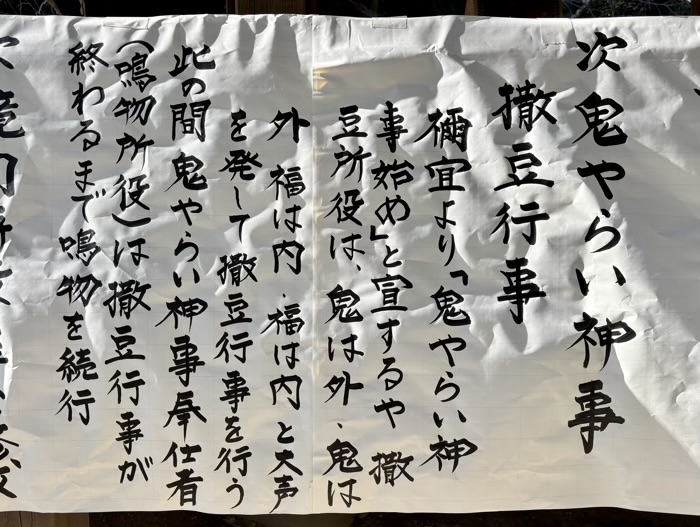 次鬼やらい神事
撒豆行事
禰宜より「鬼やらい神
事始め」と宣するや 撒
豆所役は、鬼は外、鬼は
外 福は内、福は内と大声
を発して撒豆行事を行う
此の間鬼やらい神事奉仕者
(鳴物所役)は撒豆行事が
終わるまで鳴物を続行